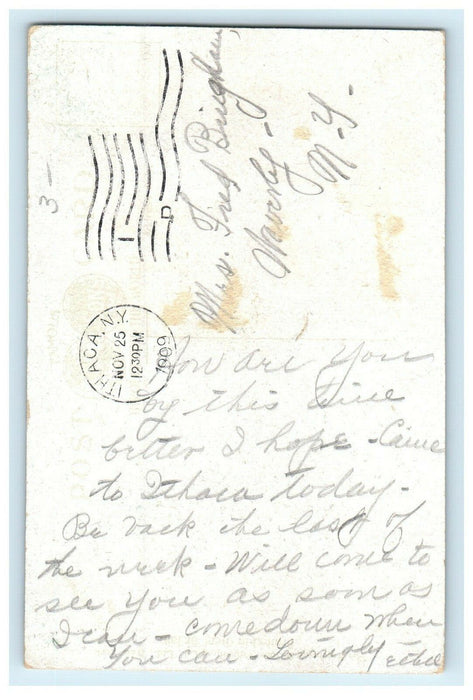 3-
Mrs. Fred Bingham,
Waverly-
N-Y-
ITHACA, N.Y.
NOV 25
1230PM
1909
How are you
by this time
better I hope - Came
to Ithaca today-
Be back the last of
the week - Will come to
see you as soon as
I can - come down when
you can - Lovingly Ethel